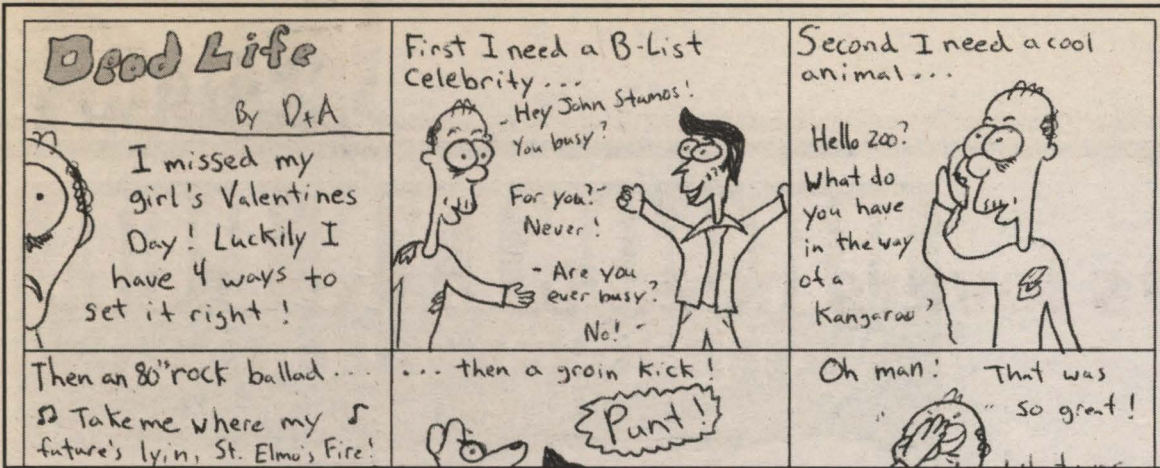 Dead Life
By D+A
I missed my
girl's Valentines
Day! Luckily I
have 4 ways to
set it right!
First I need a B-List
Celebrity...
- Hey John Stamos!
You busy?
For you?-
Never!
- Are you
ever busy?
No! -
Second I need a cool
animal...
Hello zoo?
What do
you have
in the way
of a
Kangaroo?
Then an 80's rock ballad...
♫ Take me where my ♪
future's lyin, St. Elmo's Fire!
... then a groin kick!
Punt!
Oh man! That was
so great!